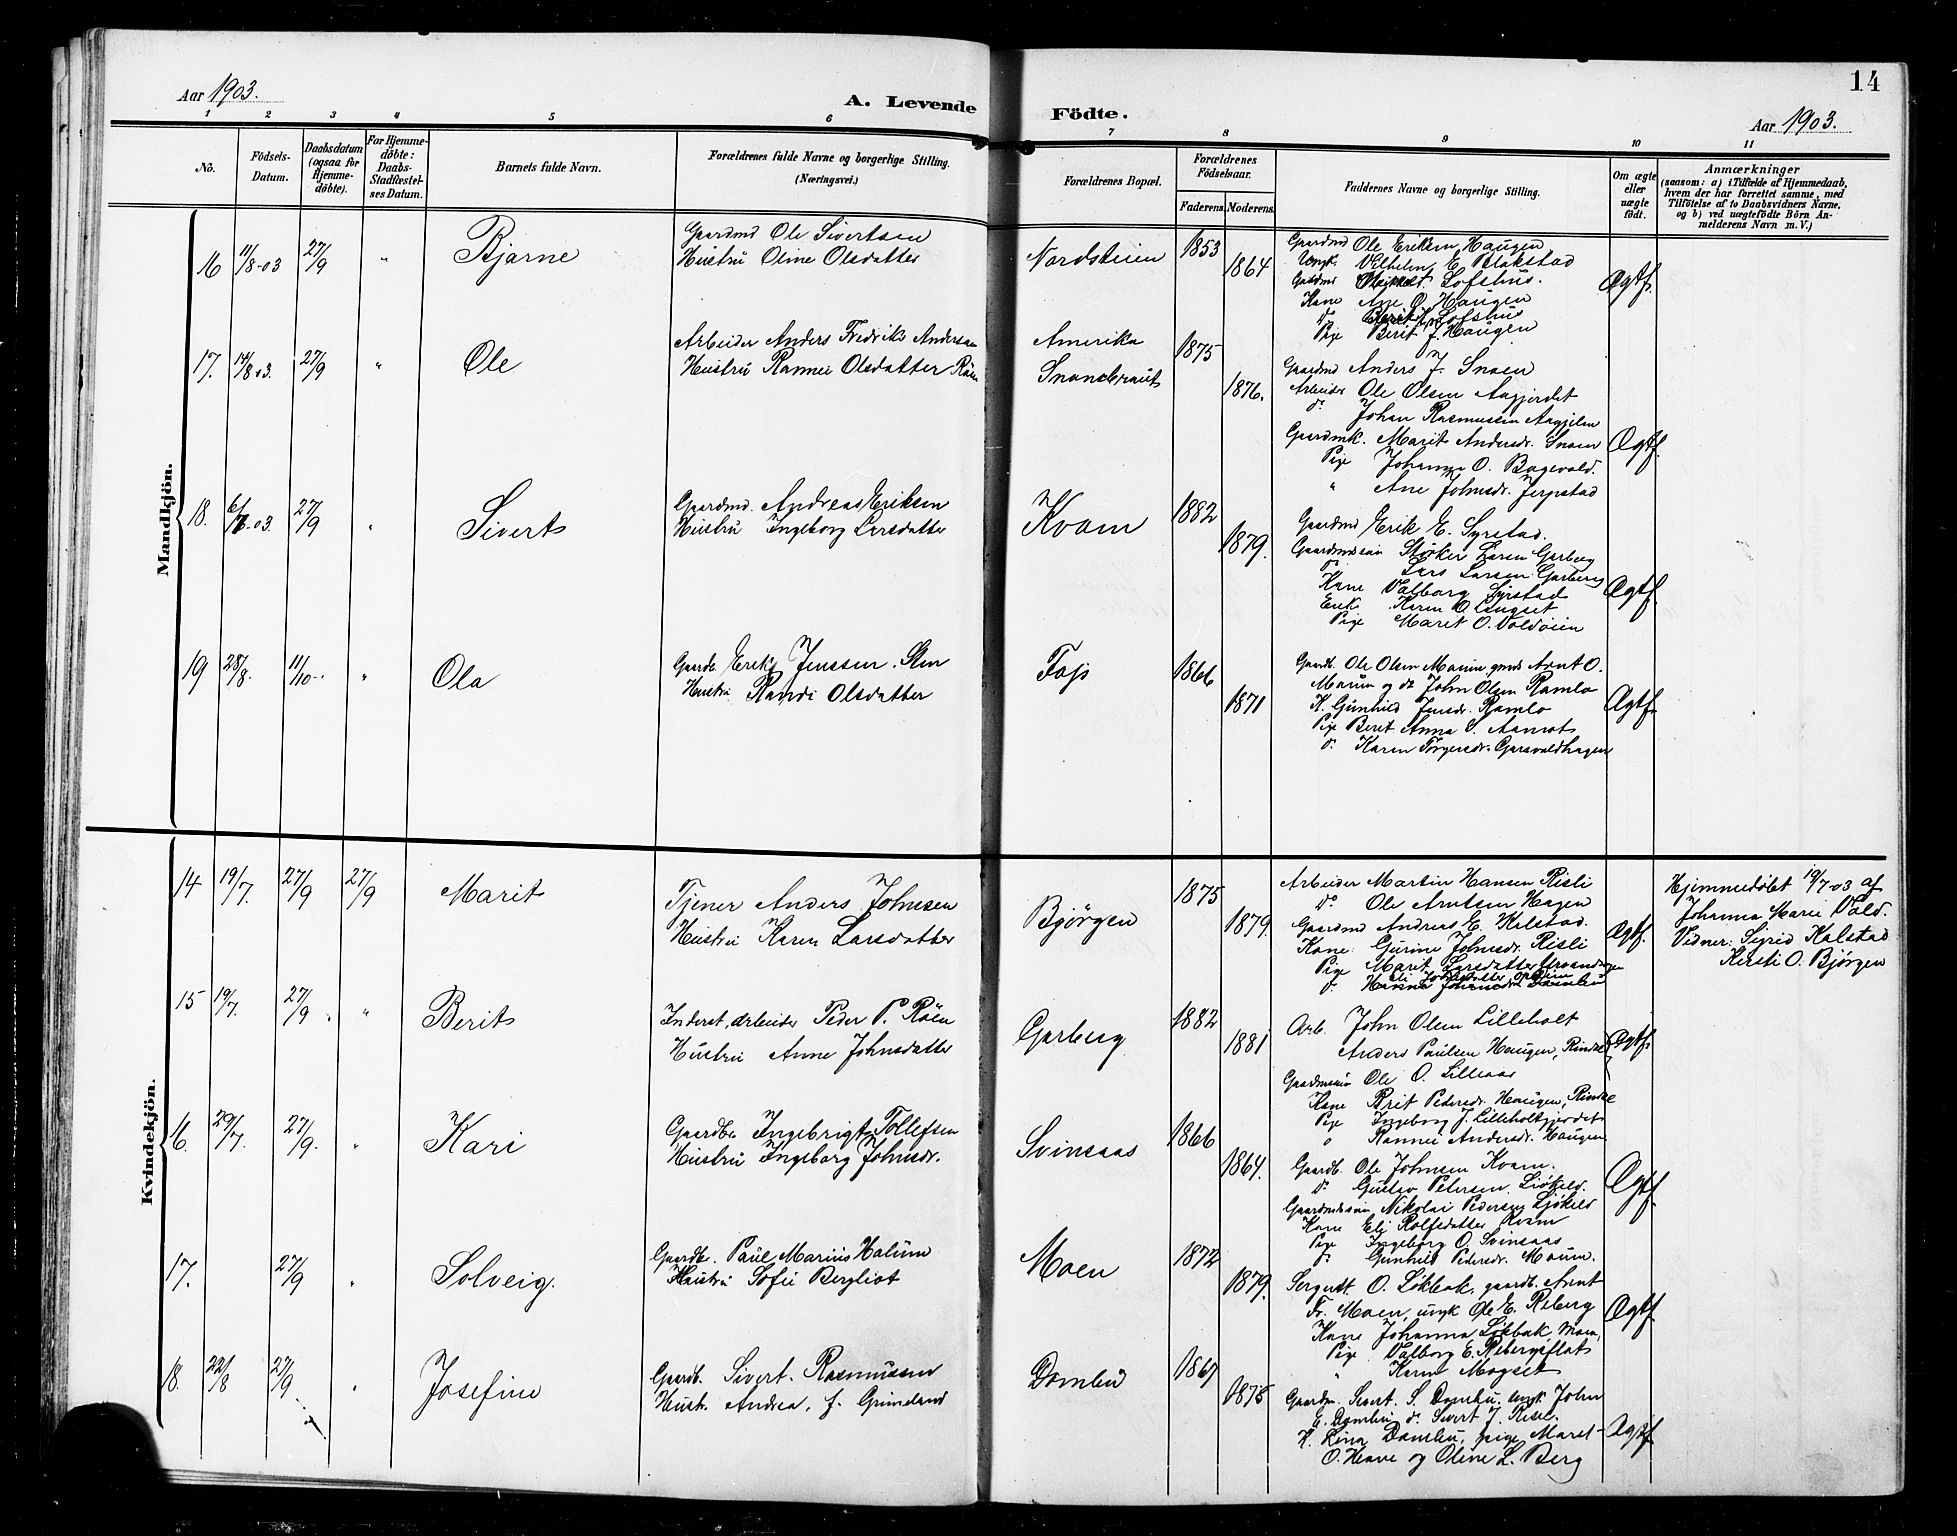 14
Aar 1903.
A. Levende
Födte.
Aar 1903.
1 2 3 4 5 6 7 8 9 10 11
No.
Födsels-Datum.
Daabsdatum (ogsaa for Hjemme-döbte).
For Hjemme-döbte: Daabs-Stadfæstel-ses Datum.
Barnets fulde Navn.
Forældrenes fulde Navne og borgerlige Stilling.
(Næringsvei.)
Forældrenes Bopæl.
Forældrenes Födselsaar.
Faderens. Moderens.
Faddernes Navne og borgerlige Stilling.
Om ægte eller uægte födt.
Anmærkninger
(saasom: a) i Tilfælde af Hjemmedaab,
hvem der har forrettet samme, med
Tilföielse af to Daabsvidners Navne,
og b) ved uægtefödte Börn An-
melderens Navn m. V.)
Mandkjön.
16 11/8-03 27/9 " Bjarne
Gaardmd Ole Sivertsen
Hustru Oline Olsdatter
Nordsteien 1853 1864
Gaardmd Ole Eriksen Haugen
Ungk. Vilhelm E. Blakstad
Gaardmd Lofshus.
Kone Ane O. Haugen
do Lofshus
Pige Berit J. Haugen
Ægtf.
17. 14/8 03. 27/9 " Ole
Arbeider Anders Fredrik Andersen
Hustru Rannei Olsdatter Röen
Amerika
Snoen 1875 1876.
Gaardmd Anders J. Snoen
Arbeider Ole Olsen Aagjerdet
do Johan Rasmussen
Gaardmk. Marit Andersdr. Snoen
Pige Johanna O. Bagevold.
" Ane Johnsdr. Jerpstad
Ægtf.
18. 03. 27/9 " Sivert
Gaardmd. Andreas Eriksen
Hustru Ingeborg Larsdatter
Kvam 1882 1879.
Gaardmd Erik E. Syrstad.
Gaardmdssön Störker Larsen Garberg
do Lars Larsen Garberg
Kone Valborg Syrstad
Enke Karen O.
Pige Marit O. Voldöien
Ægtf.
19 28/8. 11/10 " Ola
Gaardb. Erik Jenssen
Hustru Randi Olsdatter
1866 1871
Gaardb. Ole Olsen Moum, gmd Arnt O.
Moum og do John Olsen Ramlo
K. Gunhild Jensdr. Ramlo
Pige Beret Anna S. Aamot
do Karen Torgersdr. Garsvoldhagen
Ægtf.
Kvindekjön.
14 19/7. 27/9 27/9 Marit
Tjener Anders Johnsen
Hustru Karen Larsdatter
Bjørgen 1875 1879.
Arbeider Martin Hansen Risli
do Ole Arntsen Hagen
Gaardmd Andreas E. Kalstad.
Kone Gurine Johnsdr. Risli
Pige Marit Larsdatter
do
Ægtf.
Hjemmedøbt 19/7 03 af
Johanna Marie Vold.
Vidner: Sigrid Kalstad
Kersti O. Bjørgen
15 19/7. 27/9 " Berit
Inderst, arbeider Peder P. Röen
Hustru Anne Johnsdatter
Garberg 1882 1881
Arb. John Olsen Lilleholt
Anders Paulsen Haugen, Rindal
Gaardmssön Ole O. Lilleaas
Kone Brit Pedersdr. Haugen, Rindal
Pige Ingeborg J. Lilleholtgjerdet
" Rannei Andersdr. Haugen
Ægtf.
16. 29/7. 27/9. " Kari
Gaardbr Ingebrigt Tollefsen
Hustru Ingeborg Johnsdr.
Svinsaas 1866 1864.
Gaardb. Ole Johnsen Kvam.
do Gustav Petersen
Gaardmdssön Nikolai Pedersen
Kone Eli Rolfsdatter Kvam
Pige Ingeborg O. Svinsaas
do Gunhild Pedersdr. Moum.
Ægtf.
17. 27/9 " Solveig.
Gaardbr. Paul Marius Halum
Hustru Sofie Bergliot
Moen 1872 1879.
Sergeant O. Løkbak, gaardb. Arnt
Fr. Moen, ungk Ole E. Reberg
Kone Johanna Løkbak, Moen,
Pige Valborg E. Rebergsflat
" Karen Mogset
Ægtf.
18. 22/8 27/9 " Josefine
Gaardb. Sivert Rasmussen
Hustr. Andrea, f. Grimeland
Domlu 1867 1875
Gaardm. Sivert S. Domlu, ungk. John
E. Domlu do Sivert J.
K. Lina Domlu, pige Maret
O. Hove og Oline L. Berg
Ægtf.